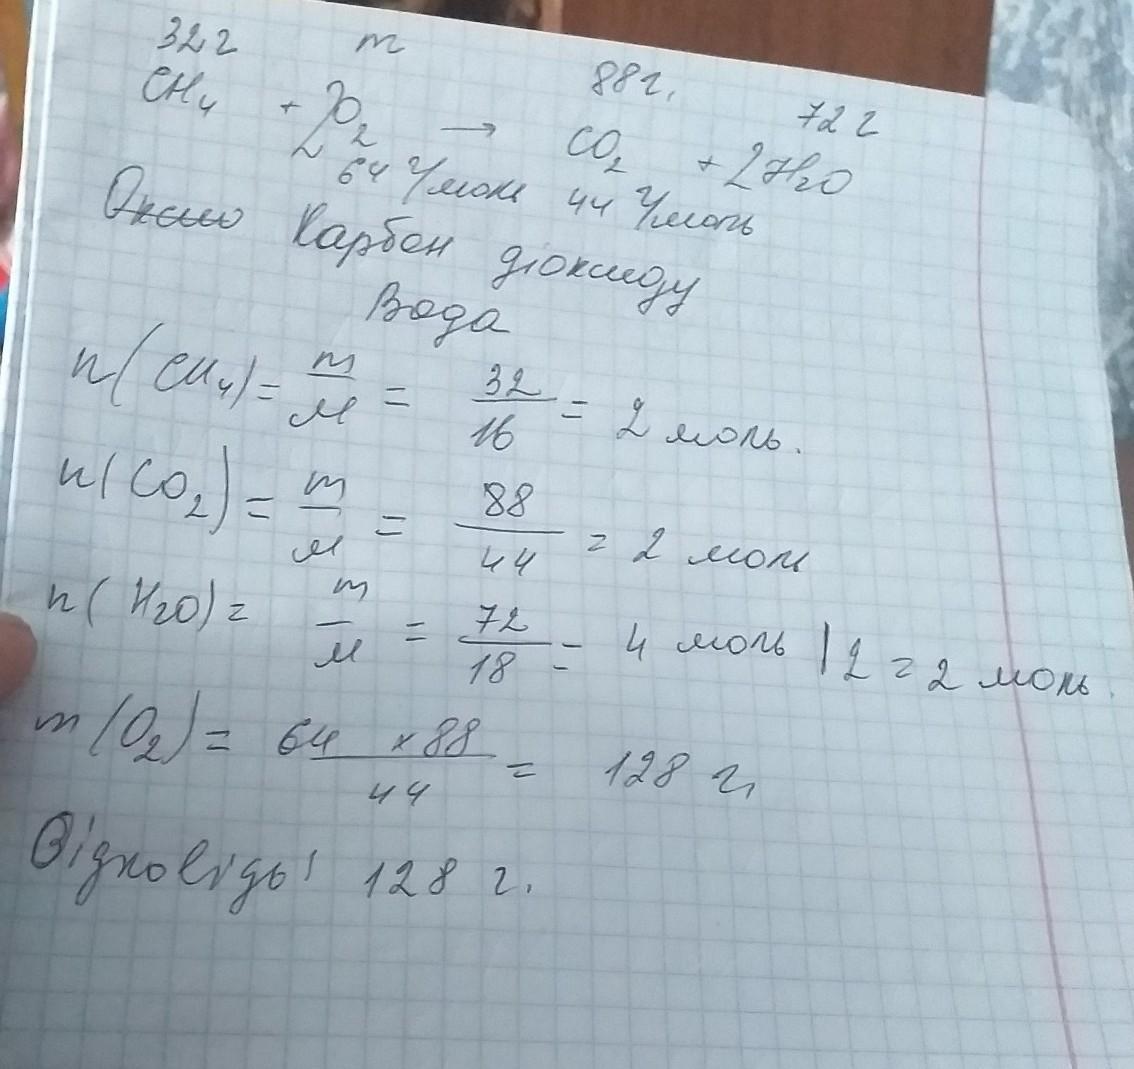 32г m 88г. 72г
CH4 + 2O2 → CO2 + 2H2O
64 г/моль 44 г/моль
Карбон діоксиду
Вода
n(CH4) = m/M = 32/16 = 2 моль.
n(CO2) = m/M = 88/44 = 2 моль
n(H2O) = m/M = 72/18 = 4 моль | 2 = 2 моль.
m(O2) = 64 × 88/44 = 128 г,
Відповідь! 128 г.